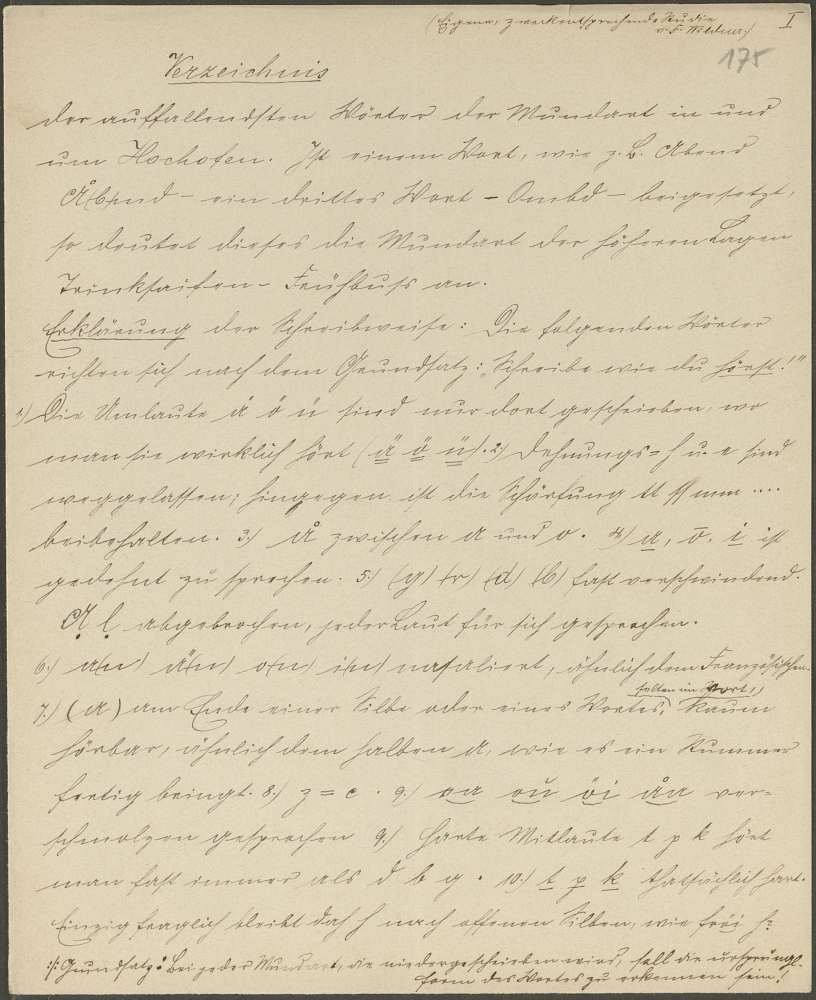 (Eigene, zweckentsprechende Studie
v. F. Wildner)
I
175
Verzeichnis
der auffallendsten Wörter der Mundart in und
um Hochofen. Ist einem Wort, wie z. B. Abend
Å(b)nd – ein drittes Wort – Ombd – beigesetzt,
so deutet dieses die Mundart der höheren Lagen
Trinksaifen – Frühbuss an.
Erklärung der Schreibweise: Die folgenden Wörter
richten sich nach dem Grundsatz: „Schreibe wie du hörst!"
1.) Die Umlaute ä ö ü sind nur dort geschrieben, wo
man sie wirklich hört (ä ö ü). 2.) Dehnungs=h u. e sind
weggelassen; hingegen ist die Schärfung tt ss mm ....
beibehalten. 3.) å zwischen a und o. 4.) a, o, i ist
gedehnt zu sprechen. 5.) (g) (r) (d) (b) fast verschwindend.
Ạ ḷ abgebrochen, jeder Laut für sich gesprochen.
6.) a(n) ä(n) o(n) i(n) nasaliert, ähnlich dem Französischen.
selten im Wort,)
7.) (a) am Ende einer Silbe oder eines Wortes, kaum
hörbar, ähnlich dem halben a, wie es ein Stummer
fertig bringt. 8.) z = c. 9.) oa ou öi åa ver=
schmolzen gesprochen 9.) Harte Mitlaute t p k hört
man fast immer als d b g. 10.) t p k thatsächlich hart.
Einzig fraglich bleibt das h nach offenen Silben, wie fröi h?
:/: Grundsatz: Bei jeder Mundart, die niedergeschrieben wird, soll die ursprüngl.
Form des Wortes zu erkennen sein!